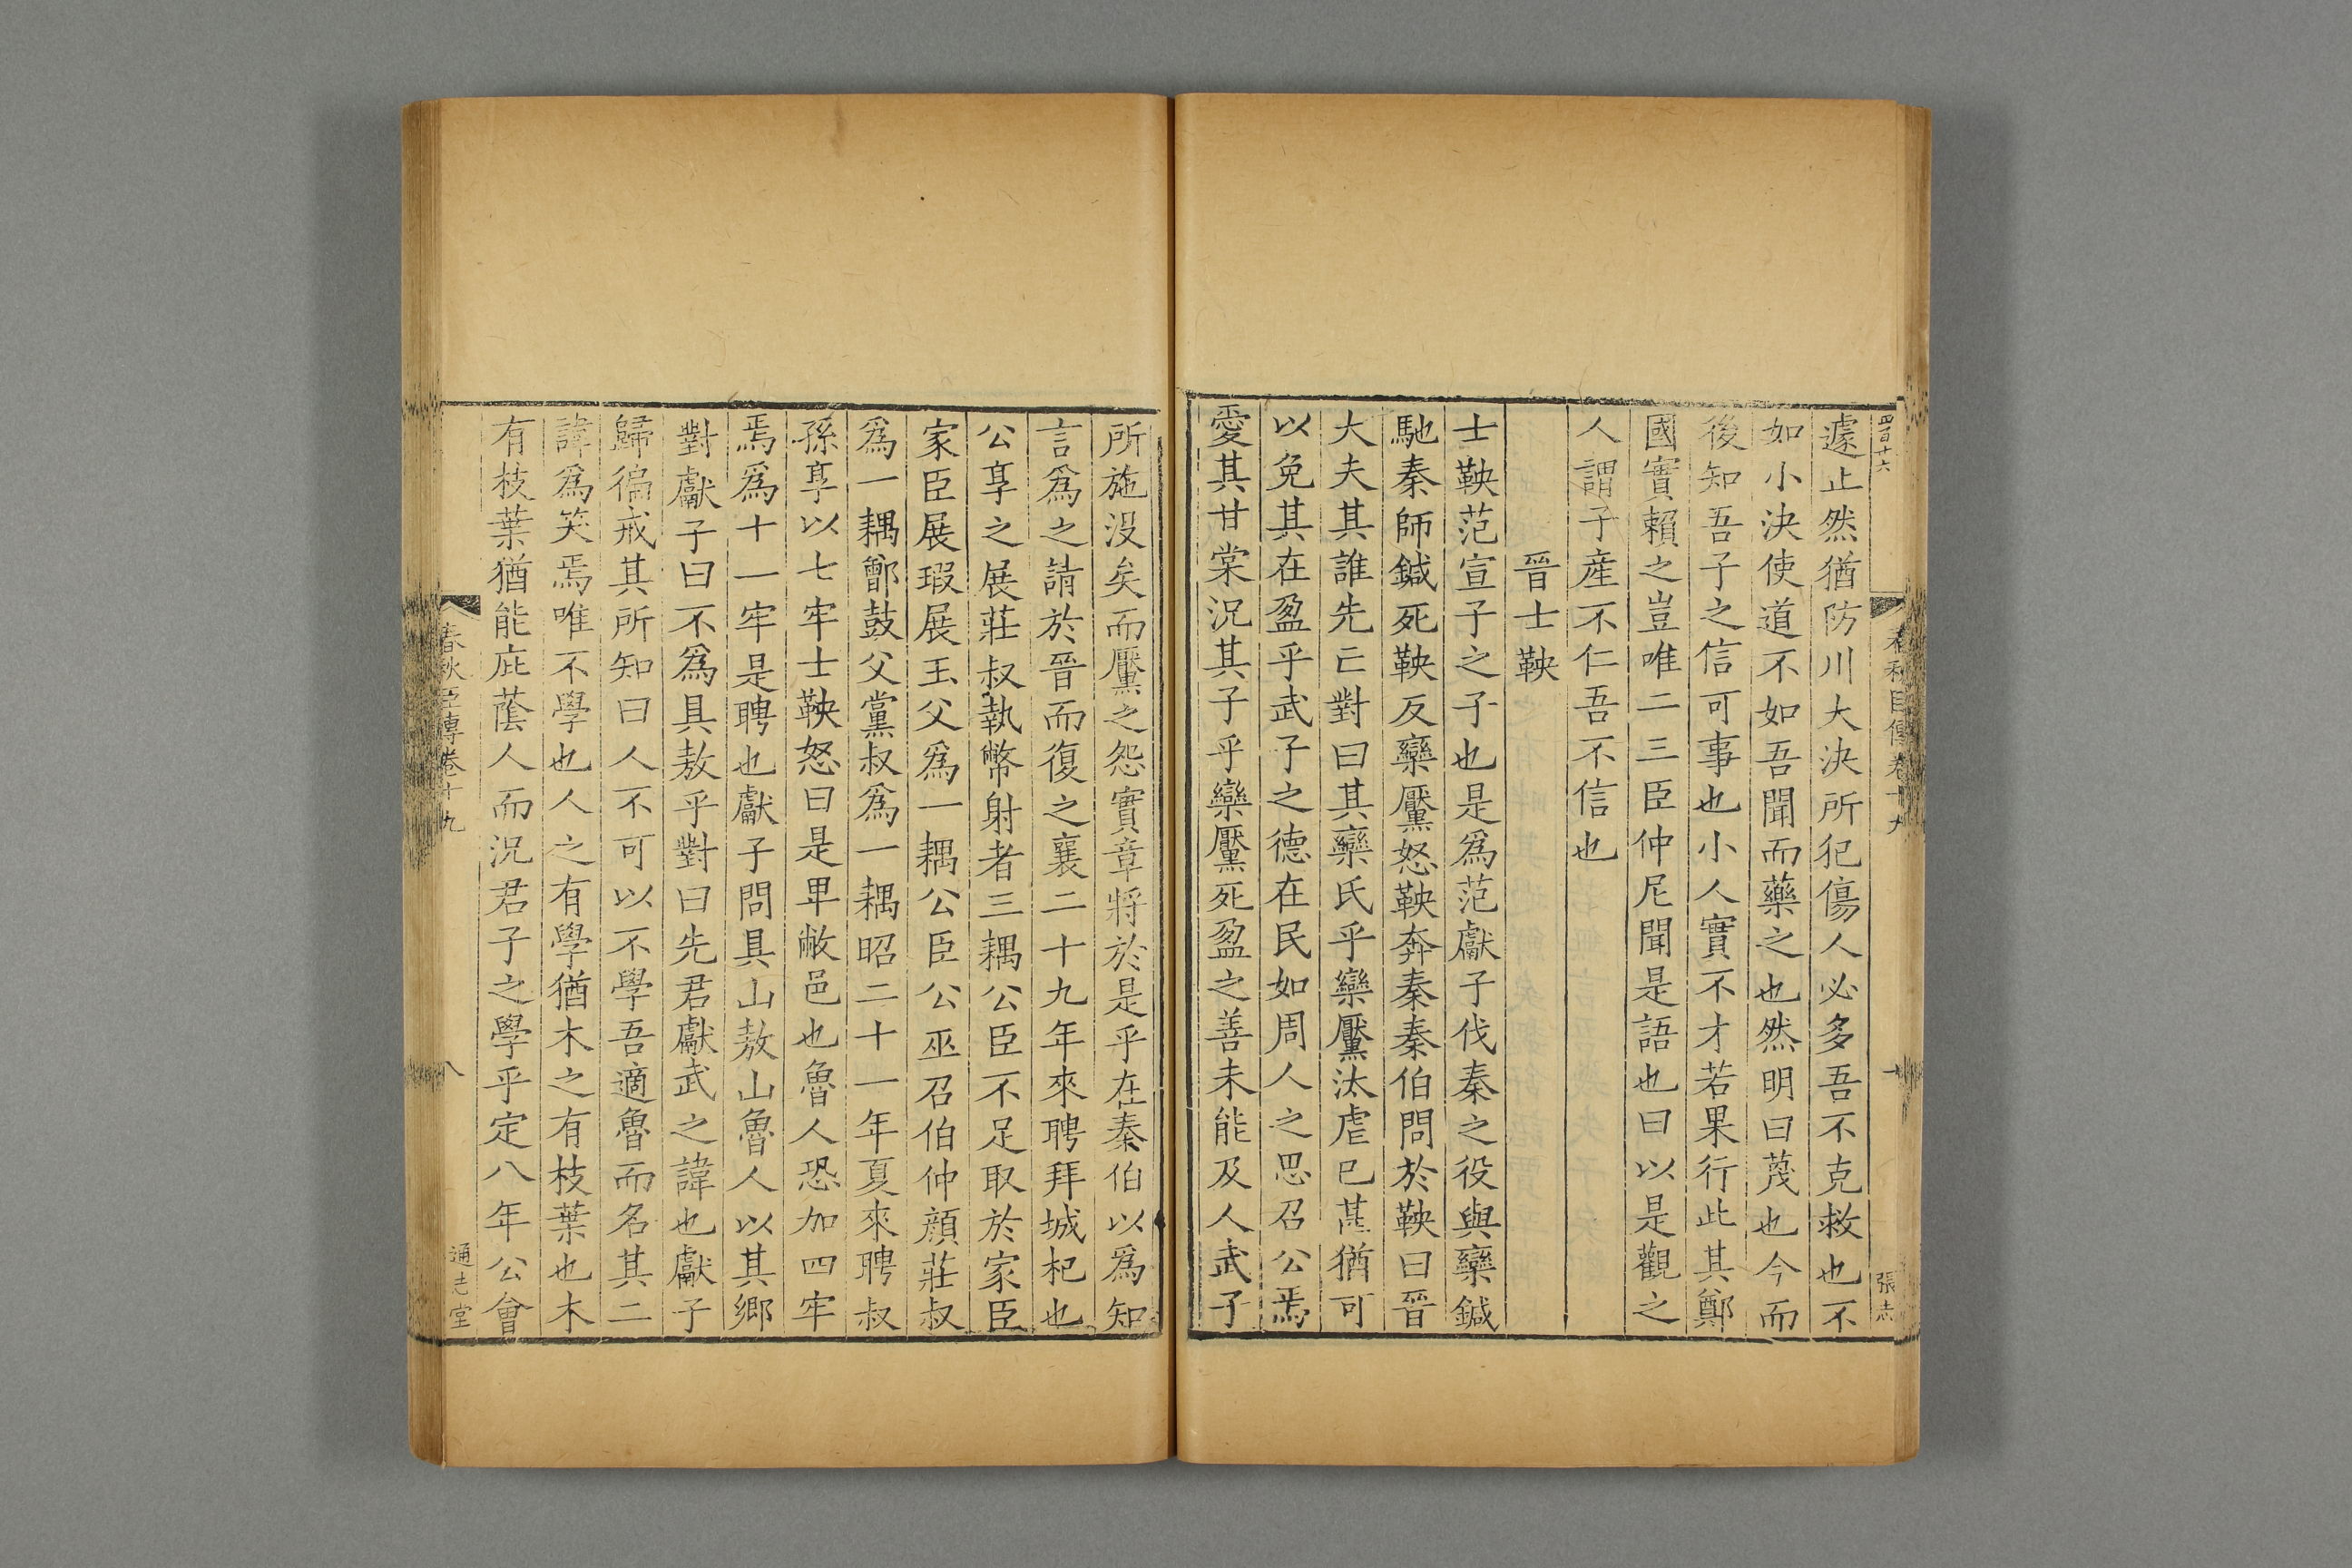 四百十六
春秋臣傳卷十九
張志
遽止然猶防川大決所犯傷人必多吾不克救也不
如小決使道不如吾聞而藥之也然明曰蔑也今而
後知吾子之信可事也小人實不才若果行此其鄭
國實賴之豈唯二三臣仲尼聞是語也曰以是觀之
人謂子產不仁吾不信也
晉士鞅
士鞅范宣子之子也是爲范獻子伐秦之役與欒鍼
馳秦師鍼死鞅反欒黶怒鞅奔秦秦伯問於鞅曰晉
大夫其誰先亡對曰其欒氏乎欒黶汰虐已甚猶可
以免其在盈乎武子之德在民如周人之思召公焉
愛其甘棠況其子乎欒黶死盈之善未能及人武子
所施沒矣而黶之怨實章將於是乎在秦伯以爲知
言爲之請於晉而復之襄二十九年來聘拜城杞也
公享之展莊叔執幣射者三耦公臣不足取於家臣
家臣展瑕展玉父爲一耦公臣公巫召伯仲顏莊叔
爲一耦鄫鼓父黨叔爲一耦昭二十一年夏來聘叔
孫享以七牢士鞅怒曰是卑敝邑也魯人恐加四牢
焉爲十一牢是聘也獻子問具山敖山魯人以其鄉
對獻子曰不爲具敖乎對曰先君獻武之諱也獻子
歸徧戒其所知曰人不可以不學吾適魯而名其二
諱爲笑焉唯不學也人之有學猶木之有枝葉也木
有枝葉猶能庇蔭人而況君子之學乎定八年公會
春秋臣傳卷十九
八
通志堂